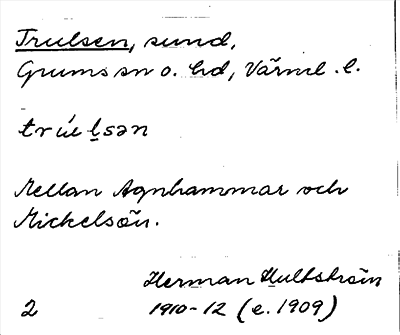 Trulsen, sund,
Grums sn o. hd, Värml. l.
trúlsən
Mellan Agnhammar och
Mickelsön.
Herman Hultström
1910-12 (e. 1909)
2